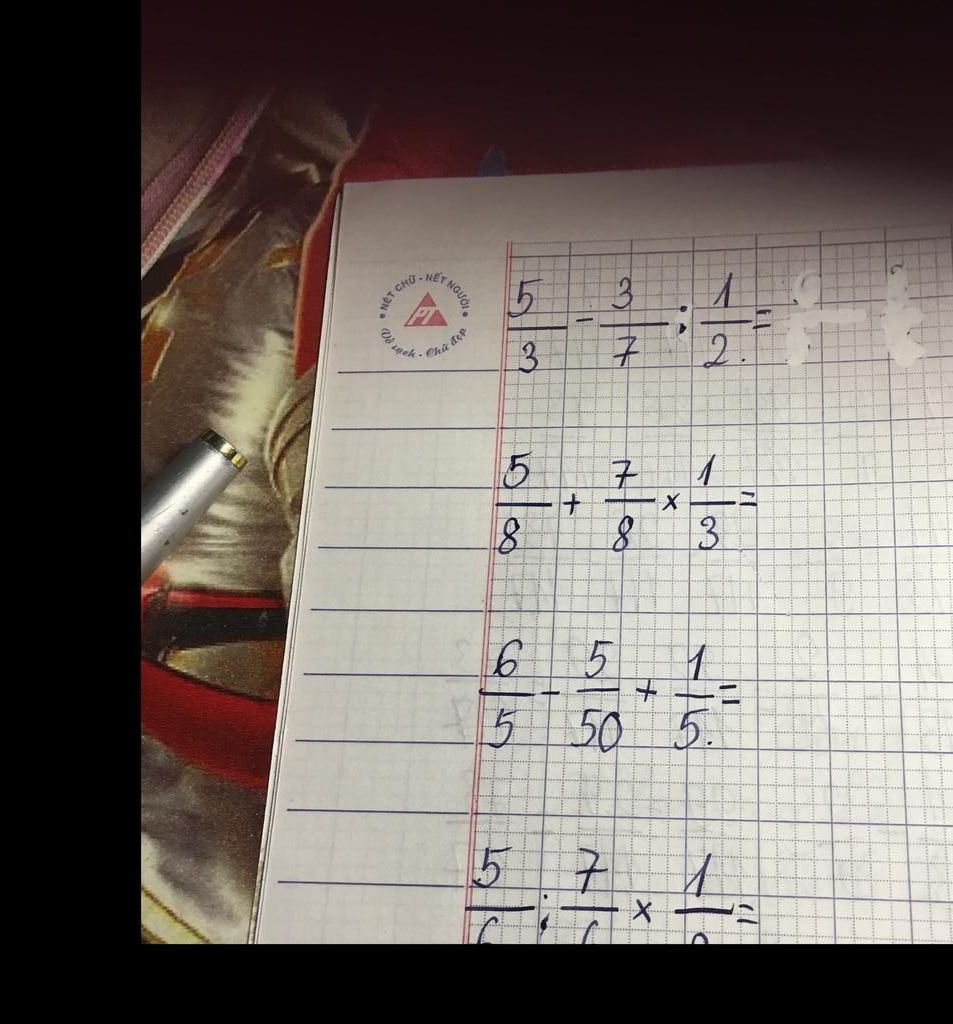 NÉT CHỮ - NẾT NGƯỜI
PT
Vở sạch - Chữ đẹp
5/3 - 3/7 : 1/2 =
5/8 + 7/8 × 1/3 =
6/5 - 5/50 + 1/5 =
5 : 7 × 1 =